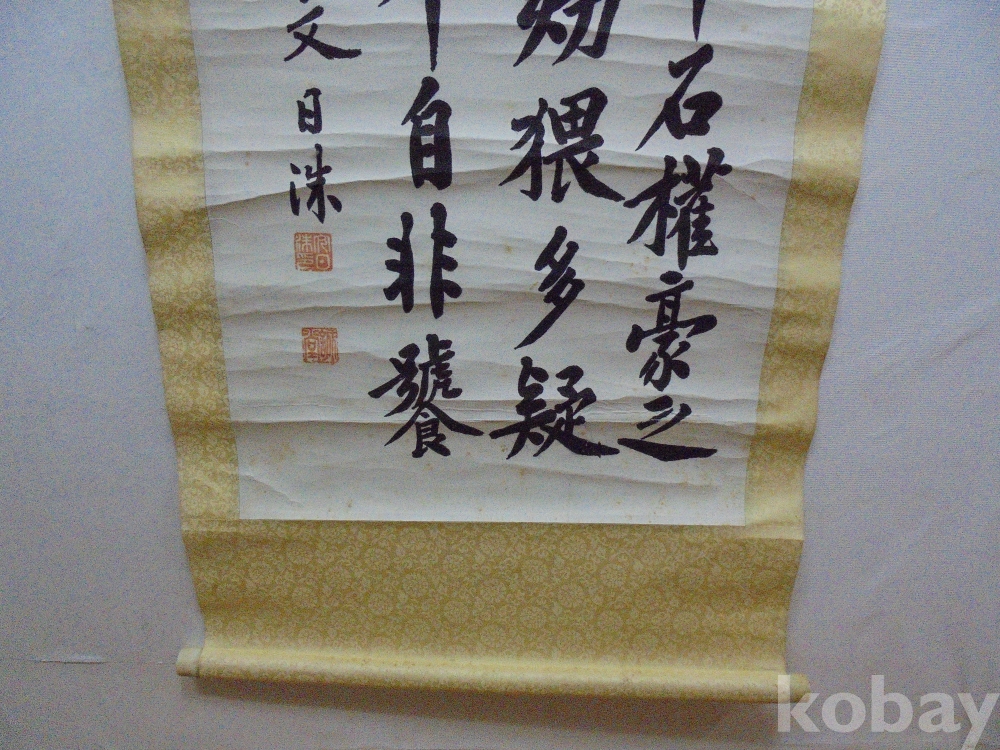 石權豪之
猥多疑
自非饕
文日洙
kobay